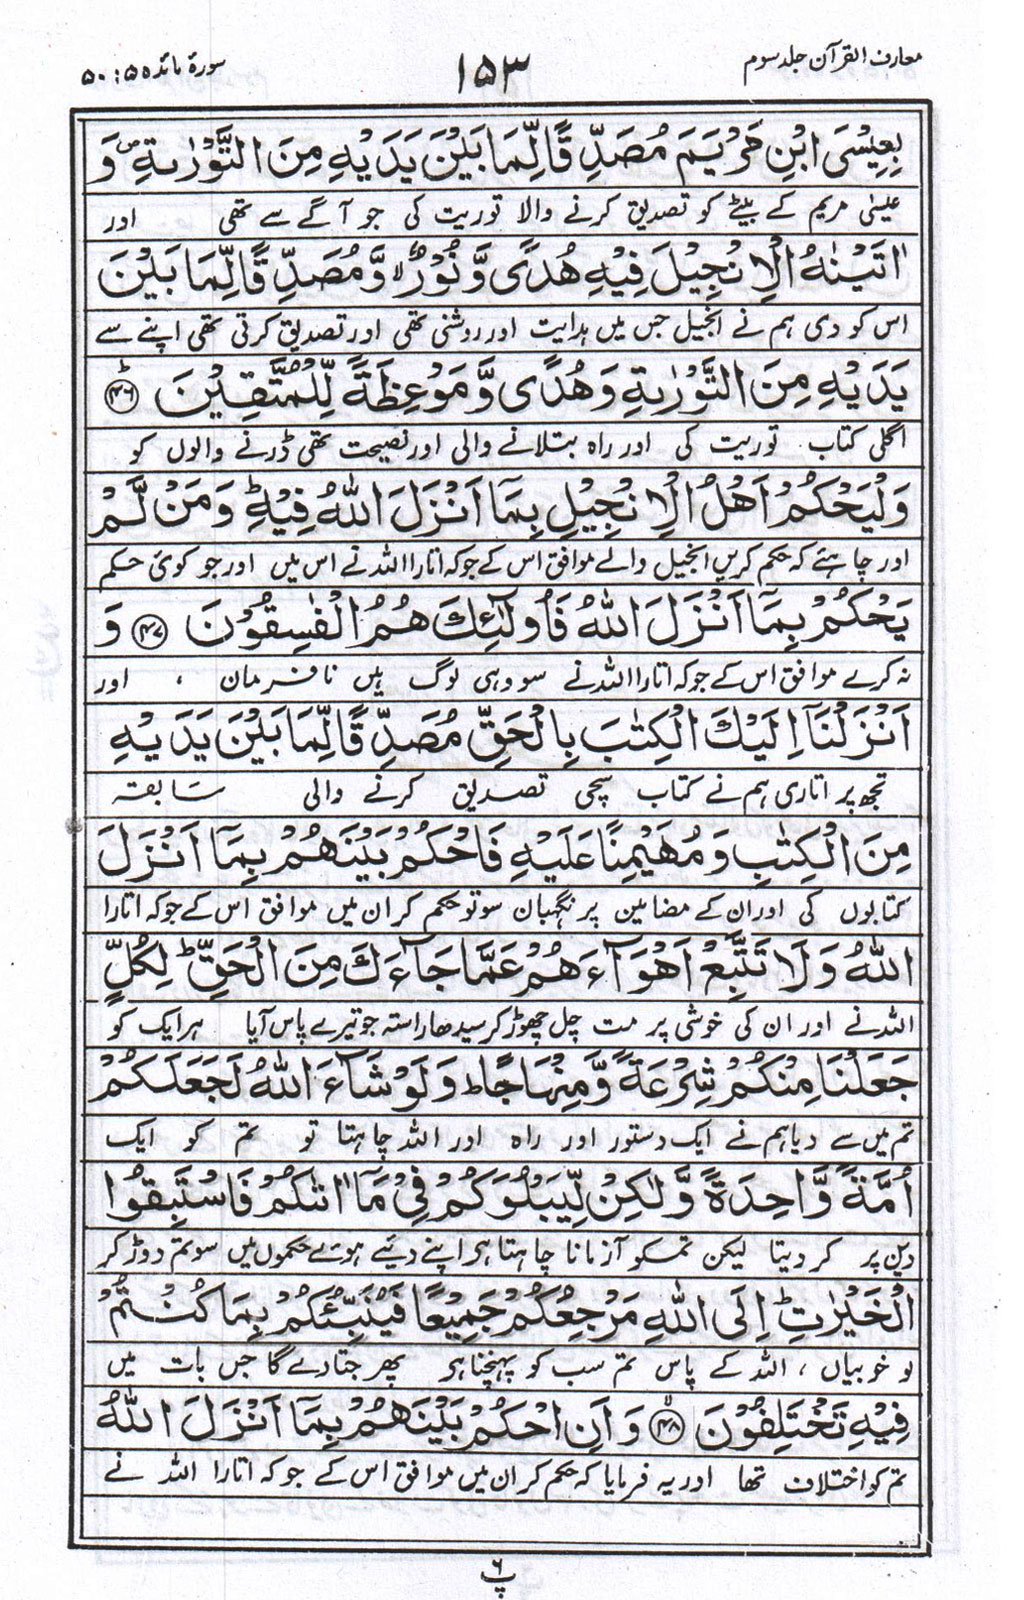 معارف القرآن جلد سوم
۱۵۳
سورۂ مائدہ ۵ : ۵۰
بِعِيْسَى ابْنِ مَرْيَمَ مُصَدِّقًا لِّمَا بَيْنَ يَدَيْهِ مِنَ التَّوْرٰىةِ ۪ وَ
عیسٰی مریم کے بیٹے کو تصدیق کرنے والا توریت کی جو آگے سے تھی اور
اٰتَيْنٰهُ الْاِنْجِيْلَ فِيْهِ هُدًى وَّ نُوْرٌ ۙ وَّ مُصَدِّقًا لِّمَا بَيْنَ
اس کو دی ہم نے انجیل جس میں ہدایت اور روشنی تھی اور تصدیق کرتی تھی اپنے سے
يَدَيْهِ مِنَ التَّوْرٰىةِ وَهُدًى وَّ مَوْعِظَةً لِّلْمُتَّقِيْنَ ﴿۴۶﴾ؕ
اگلی کتاب توریت کی اور راہ بتلانے والی اور نصیحت تھی ڈرنے والوں کو
وَلْيَحْكُمْ اَهْلُ الْاِنْجِيْلِ بِمَآ اَنْزَلَ اللّٰهُ فِيْهِ ؕ وَمَنْ لَّمْ
اور چاہئے کہ حکم کریں انجیل والے موافق اس کے جو کہ اتارا اللہ نے اس میں اور جو کوئی حکم
يَحْكُمْ بِمَآ اَنْزَلَ اللّٰهُ فَاُولٰٓئِكَ هُمُ الْفٰسِقُوْنَ ﴿۴۷﴾ وَ
نہ کرے موافق اس کے جو کہ اتارا اللہ نے سو وہی لوگ ہیں نافرمان ، اور
اَنْزَلْنَآ اِلَيْكَ الْكِتٰبَ بِالْحَقِّ مُصَدِّقًا لِّمَا بَيْنَ يَدَيْهِ
تجھ پر اتاری ہم نے کتاب سچی تصدیق کرنے والی سابقہ
مِنَ الْكِتٰبِ وَمُهَيْمِنًا عَلَيْهِ فَاحْكُمْ بَيْنَهُمْ بِمَآ اَنْزَلَ
کتابوں کی اور ان کے مضامین پر نگہبان سو تو حکم کر ان میں موافق اس کے جو کہ اتارا
اللّٰهُ وَلَا تَتَّبِعْ اَهْوَآءَهُمْ عَمَّا جَآءَكَ مِنَ الْحَقِّ ؕ لِكُلٍّ
اللہ نے اور ان کی خوشی پر مت چل چھوڑ کر سیدھا راستہ جو تیرے پاس آیا ہر ایک کو
جَعَلْنَا مِنْكُمْ شِرْعَةً وَّمِنْهَاجًا ؕ وَلَوْ شَآءَ اللّٰهُ لَجَعَلَكُمْ
تم میں سے دیا ہم نے ایک دستور اور راہ اور اللہ چاہتا تو تم کو ایک
اُمَّةً وَّاحِدَةً وَّلٰكِنْ لِّيَبْلُوَكُمْ فِيْ مَآ اٰتٰىكُمْ فَاسْتَبِقُوا
دین پر کر دیتا لیکن تم کو آزمانا چاہتا ہے اپنے دئیے ہوئے حکموں میں سو تم دوڑ کر
الْخَيْرٰتِ ؕ اِلَى اللّٰهِ مَرْجِعُكُمْ جَمِيْعًا فَيُنَبِّئُكُمْ بِمَا كُنْتُمْ
لو خوبیاں ، اللہ کے پاس تم سب کو پہنچنا ہے پھر جتا دے گا جس بات میں
فِيْهِ تَخْتَلِفُوْنَ ﴿۴۸﴾ۙ وَاَنِ احْكُمْ بَيْنَهُمْ بِمَآ اَنْزَلَ اللّٰهُ
تم کو اختلاف تھا اور یہ فرمایا کہ حکم کر ان میں موافق اس کے جو کہ اتارا اللہ نے
پ ۶